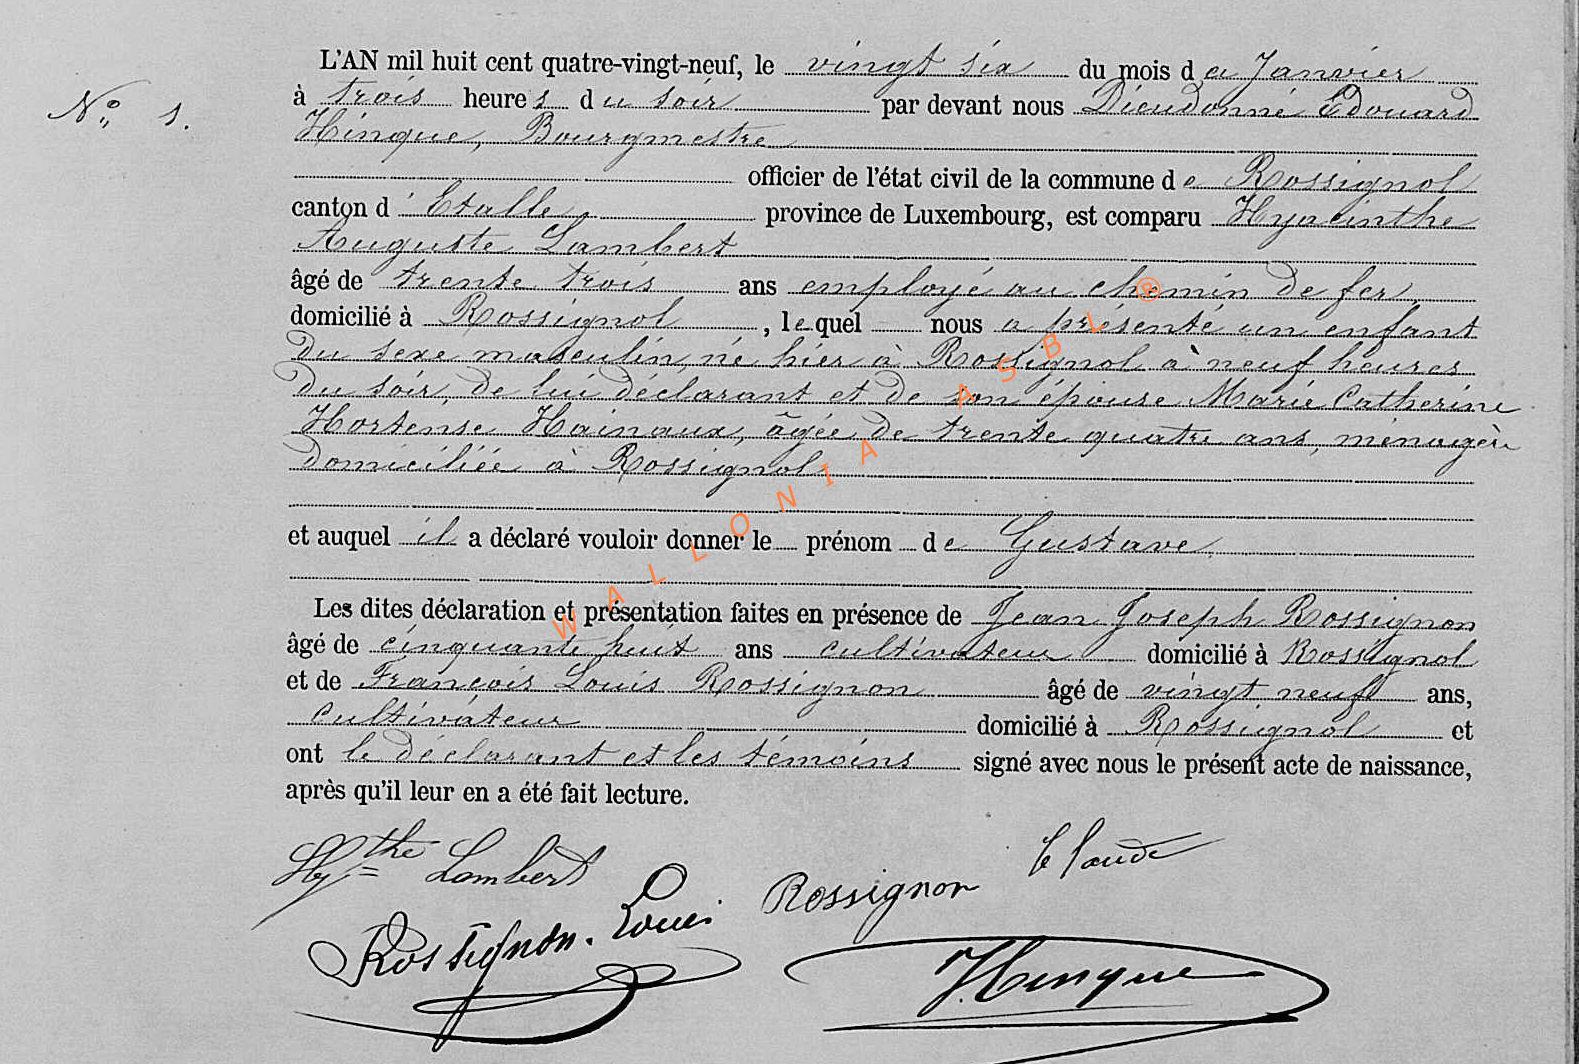 L'AN mil huit cent quatre-vingt-neuf, le vingt six du mois de Janvier
N° 1.
à trois heures du soir par devant nous Dieudonné Edouard
Hinque, Bourgmestre
officier de l'état civil de la commune de Rossignol
canton d'Etalle province de Luxembourg, est comparu Hyacinthe
Auguste Lambert
âgé de trente trois ans employé au chemin de fer,
domicilié à Rossignol, lequel nous a présenté un enfant
du sexe masculin, né hier à Rossignol à neuf heures
du soir, de lui déclarant et de son épouse Marie Catherine
Hortense Hainaux, âgée de trente quatre ans, ménagère
domiciliée à Rossignol
et auquel il a déclaré vouloir donner le prénom de Gustave
Les dites déclaration et présentation faites en présence de Jean Joseph Rossignon
âgé de cinquante huit ans cultivateur domicilié à Rossignol
et de François Louis Rossignon âgé de vingt neuf ans,
cultivateur domicilié à Rossignol et
ont le déclarant et les témoins signé avec nous le présent acte de naissance,
après qu'il leur en a été fait lecture.
Hythe Lambert
Rossignon Claude
Rossignon. Louis
Hinque
WALLONIA ASBL ®